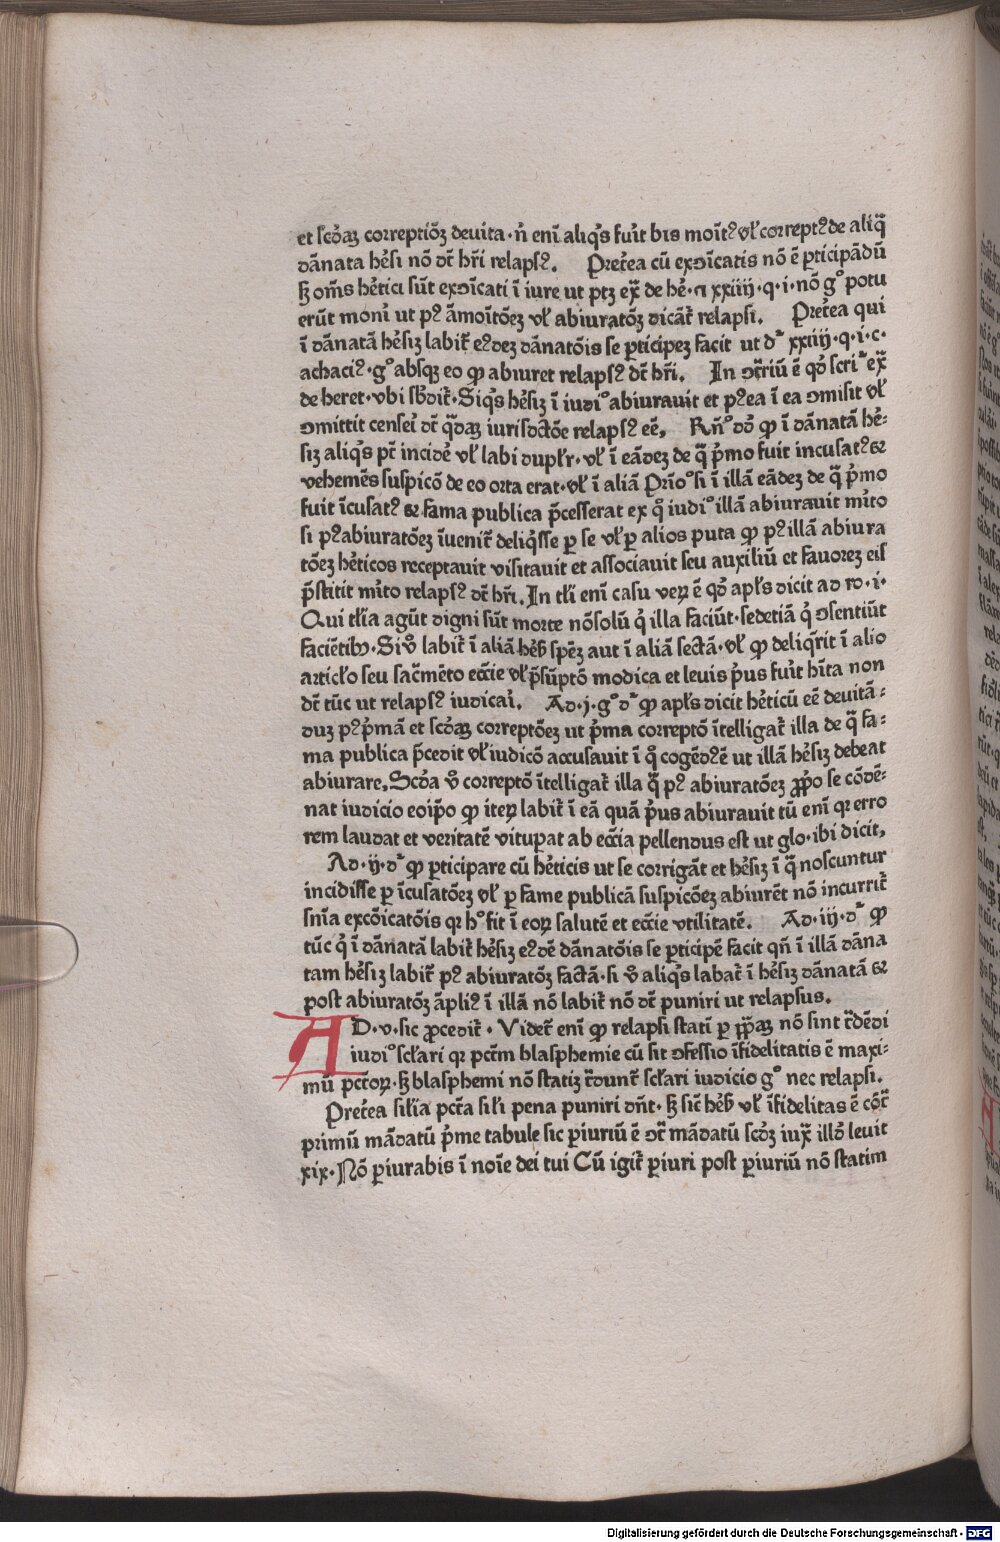 et scd̄aꝫ correptiōꝫ deuita·n̄ enī aliq̇s fuīt bis moītꝰ vl̓ correptꝰ de aliq̄
dānata hēsi nō dr̄ hr̄i relapsꝰ. Preťea cū exɔ̄icatis nō ē ꝑticipādū
ꝫ om̄s hētici sūt exɔ̄icati ī iure ut ptꝫ ex̄ de hē·a xxiiij·q·i·nō gͦ potu
erūt monī ut pꝰ āmoītōeꝫ vl̓ abiuratōꝫ dicāt̄ relapsi. Preťea qui
ī dānatā hēsiꝫ labit̄ eꝰdeꝫ dānatōis se ꝑticipeꝫ facit ut dͬ xxiiij·q·i·c·
achaciꝰ·gͦ absqꝫ eo ꝙ abiuret relapsꝰ dr̄ hr̄i. In ɔr̄iū ē qd̓ scriͬ ex̄
de heret·vbi sb̄dit̄·Siq̇s hēsiꝫ ī iudiͦ abiurauit et pꝰea ī ea ɔmisit vl̓
ɔmittit censeī dr̄ q̄daꝫ iurisdctōe relapsꝰ eē, Rn̄ͦ dd̓ ꝙ ī dānatā hē⸗
siꝫ aliq̇s pt̄ incidē vl̓ labi dupl̓r·vl̓ ī eādeꝫ de q̄ p̄mo fuit incusatꝰ ⁊
vehemēs suspicō de eo orta erat·vl̓ ī aliā Prīoͦ si ī illā eādeꝫ de q̄ p̄mo
fuit īcusatꝰ ⁊ fama publica p̄cesserat ex q̊ iudiͦ illā abiurauit mīto
si pꝰ abiuratōeꝫ īuenit̄ deliq̄sse ꝑ se vl̓ ꝑ alios puta ꝙ pꝰ illā abiura
tōeꝫ hēticos receptauit visitauit et associauit seu auxiliū et fauoreꝫ eis
p̄stitit mīto relapsꝰ dr̄ hr̄i. In tl̓i enī casu veꝝ ē qd̓ apl̄s dicit ad ro·i·
Qui tl̓ia agūt digni sūt morte nōsolū q̇ illa faciūt·sedetiā q̇ ɔsentiūt
faciētibꝫ·Siv̊ labit̄ ī aliā hēs̄ spēꝫ aut ī aliā sectā·vl̓ ꝙ deliq̄rit ī alio
articl̓o seu sac̄mēto eccīe vl̓ p̄sūptō modica et leuis p̄us fuīt hīta non
dr̄ tūc ut relapsꝰ iudicaī. Ad·j·gͦ dͬ ꝙ apl̄s dicit hēticū eē deuitā⸗
duꝫ pꝰ p̄mā et scd̓aꝫ correptōeꝫ ut p̄ma correptō ītelligat̄ illa de q̄ fa⸗
ma publica p̄cedit vl̓ iudicō accusauit ī q̊ cogēdꝰ ē ut illā hēsiꝫ debeat
abiurare, Scd̓a v̊ correptō ītelligat̄ illa q̄ pꝰ abiuratōeꝫ ꝓp̄o se cōdē⸗
nat iudicio eoip̄o ꝙ iteꝝ labit̄ ī eā quā p̄us abiurauit tū enī qꝛ erro
rem laudat et veritatē vitupat ab eccīa pellendus est ut glo·ibi dicit,
Ad·ij·dͬ ꝙ ꝑticipare cū hēticis ut se corrigāt et hēsiꝫ ī q̄ noscuntur
incidisse ꝑ īcusatōeꝫ vl̓ ꝑ fame publicā suspicōeꝫ abiurēt nō incurrit̄
snīa excōicatōis qꝛ hͦ fit ī eoꝝ salutē et eccīe vtilitatē. Ad·iij·dͬ ꝙ
tūc q̇ ī dānatā labit̄ hēsiꝫ eꝰdē dānatōis se ꝑticipē facit qn̄ ī illā dāna
tam hēsiꝫ labit̄ pꝰ abiuratōꝫ factā·si v̊ aliq̇s labat̄ ī hēsiꝫ dānatā ⁊
post abiuratōꝫ āpliꝰ ī illā nō labit̄ nō dr̄ puniri ut relapsus.
AD·v·sic ꝓcedit̄·Videt̄ enī ꝙ relapsi statī ꝑ ip̄aꝫ nō sint t̄dēdi
iudiͦ scl̓ari qꝛ pctm̄ blasphemie cū sit ɔfessio īfidelitatis ē maxi⸗
mū pctōꝝ·ꝫ blasphemi nō statiꝫ t̄dunt̄ scl̓ari iudicio gͦ nec relapsi.
Preťea sil̓ia pctā sil̓i pena puniri dn̄t·ꝫ sic̄ hēs̄ vl̓ īfidelitas ē cōt̄
primū mādatū p̄me tabule sic ꝑiuriū ē ɔr̄ mādatū scd̓ꝫ iux̄ illd̓ leuit
xix·Nō ꝑiurabis ī noīe dei tui Cū igit̄ ꝑiuri post ꝑiuriū nō statim
Digitalisierung gefördert durch die Deutsche Forschungsgemeinschaft - DFG